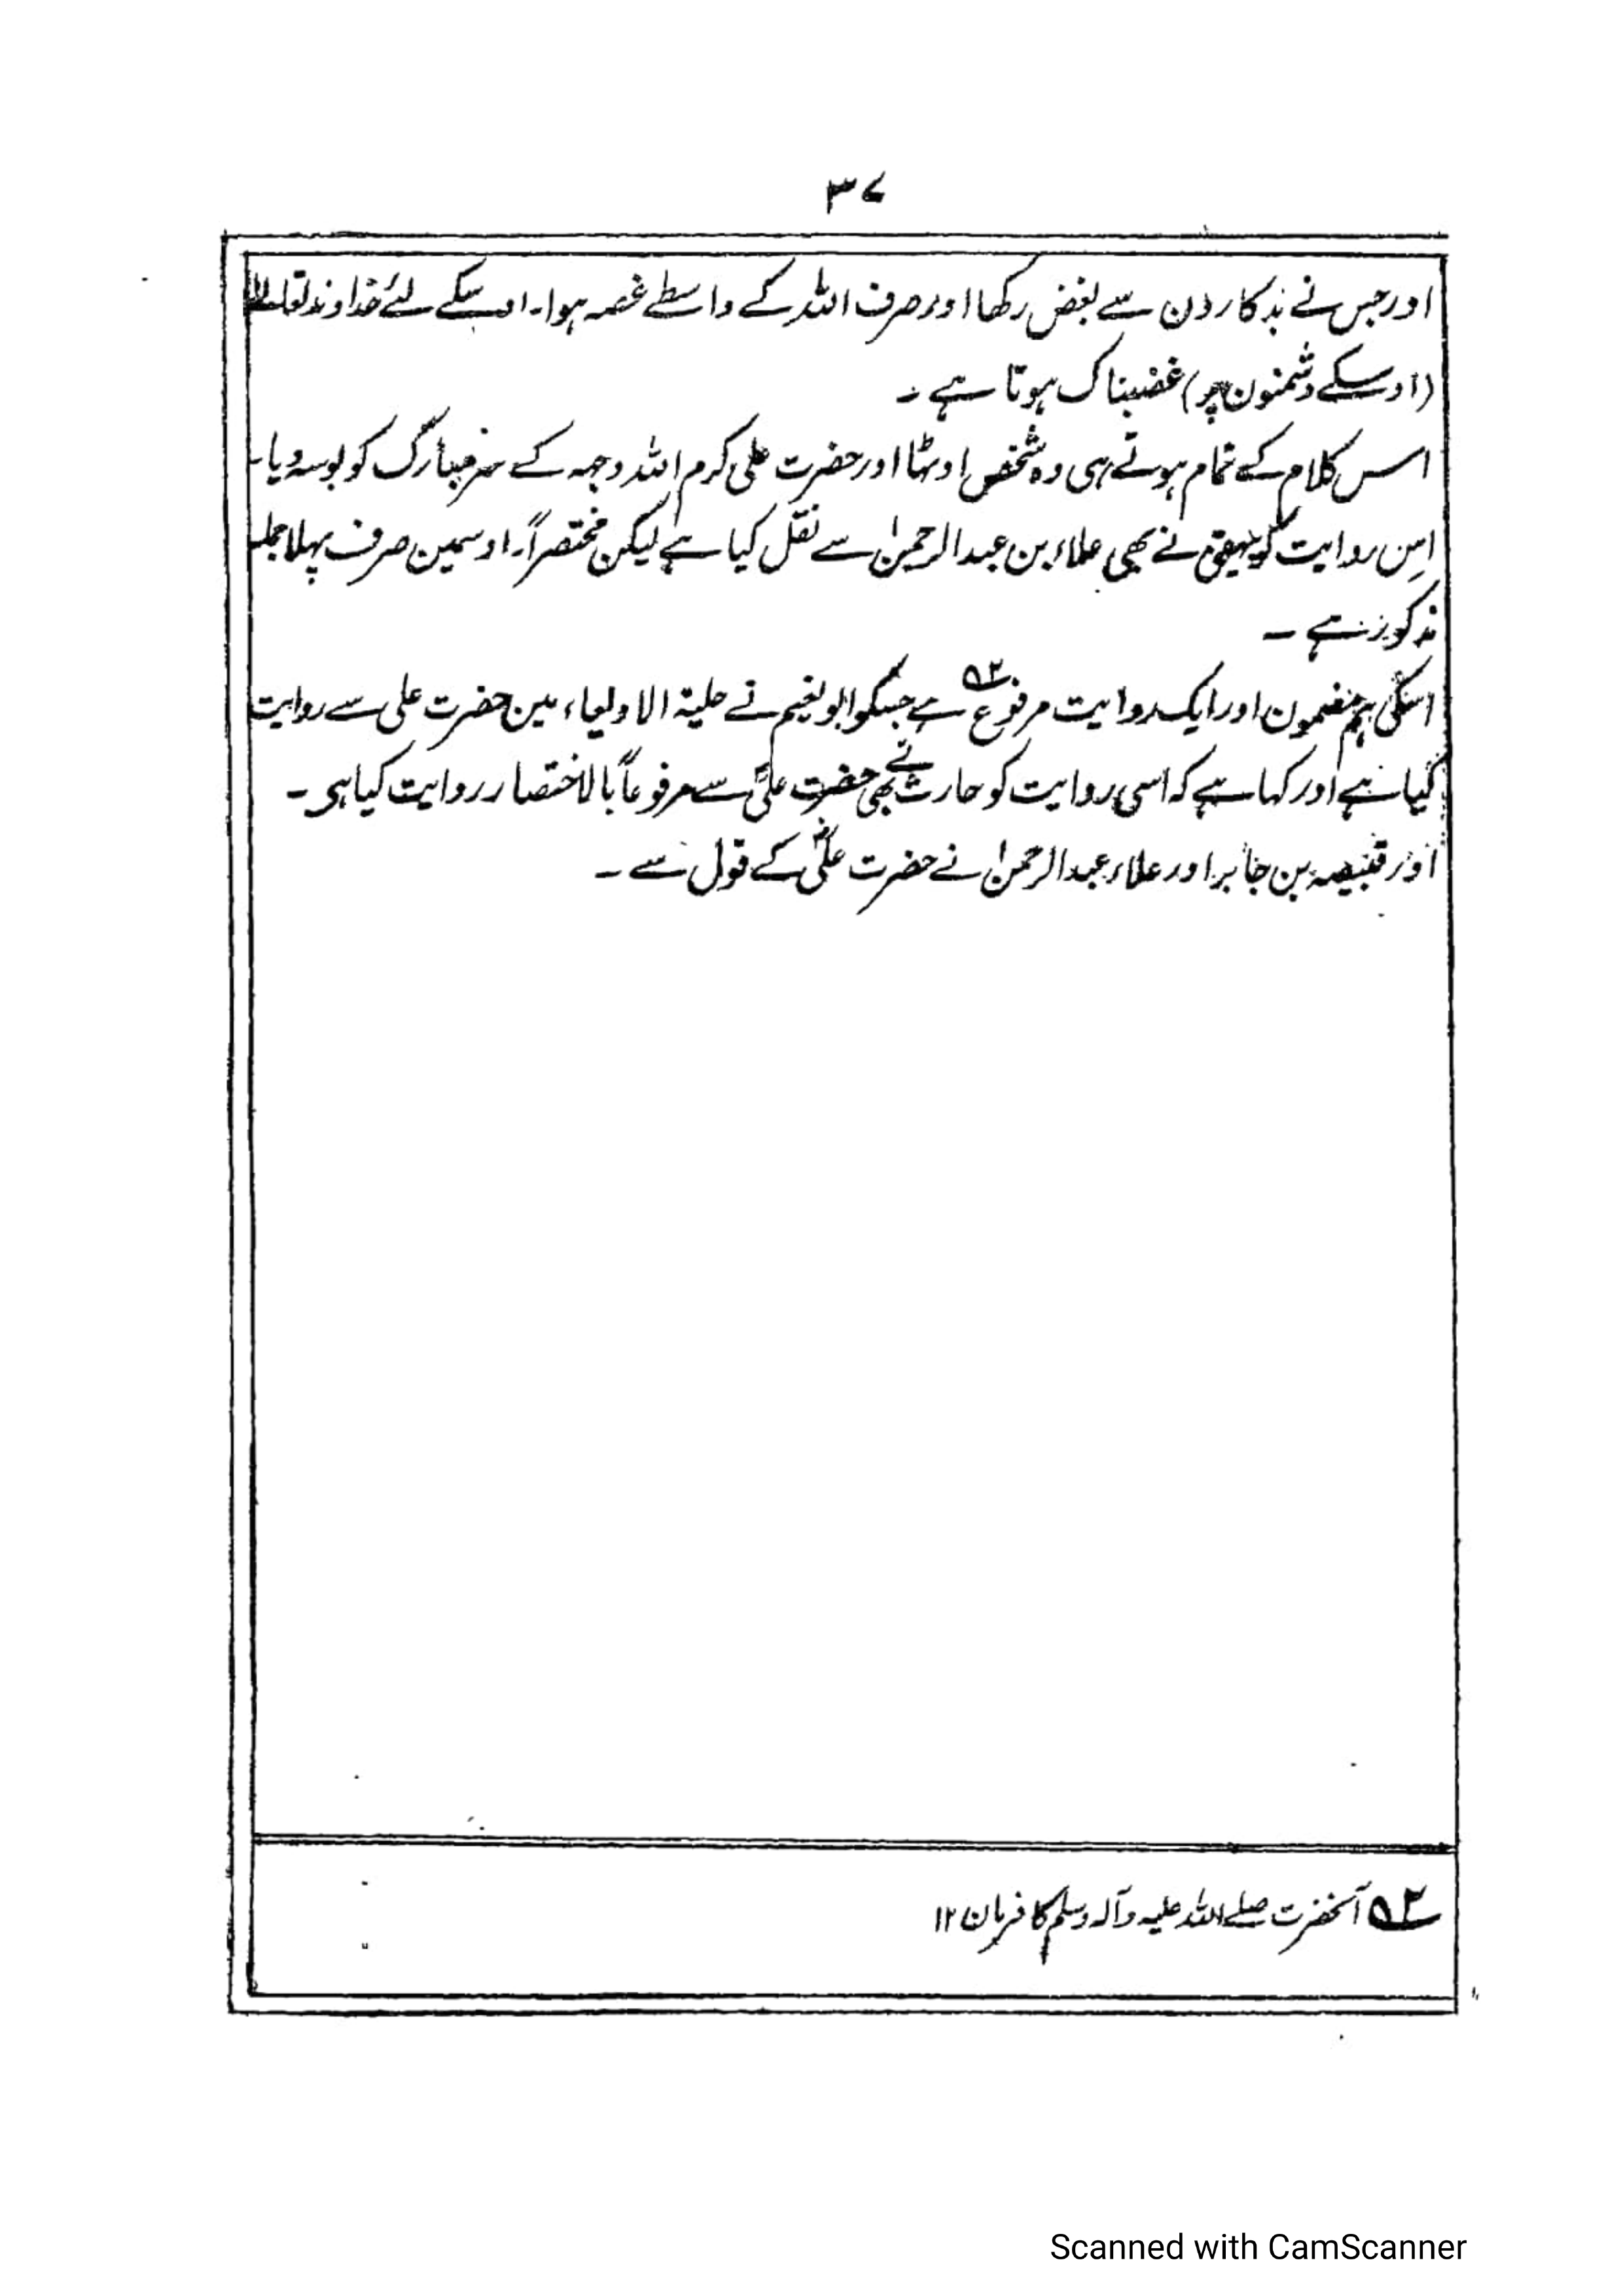 ۳۷
اور جس نے بدکارون سے بغض رکھا اور صرف اللہ کے واسطے غصہ ہوا۔ اوسکے لئے خداوند تعالیٰ
(اوسکے دشمنون پر) غضبناک ہوتا ہے۔
اس کلام کے تمام ہوتے ہی وہ شخص اوٹھا اور حضرت علی کرم اللہ وجہہ کے سر مبارک کو بوسہ دیا۔
اس روایت کو بیہقی نے بھی علاء بن عبدالرحمنٰ سے نقل کیا ہے لیکن مختصراً۔ اوسمین صرف پہلا جملہ
مذکور ہے۔
اسکی ہم مضمون اور ایک روایت مرفوع ۵۲ ہے جسکو ابو نعیم نے حلیۃ الاولیاء مین حضرت علی سے روایت
کیا ہے اور کہا ہے کہ اسی روایت کو حارث نے بھی حضرت علیؓ سے مرفوعاً بالاختصار روایت کیا ہی۔
اور قبیصہ بن جابر اور علاء عبدالرحمنٰ نے حضرت علیؓ کے قول سے۔
۵۲ آنحضرت صلے اللہ علیہ وآلہ وسلم کا فرمان ۱۲
Scanned with CamScanner